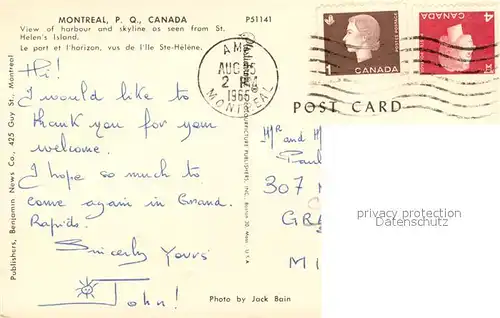 MONTREAL, P. Q., CANADA
P51141
View of harbour and skyline as seen from St.
Helen's Island.
Le port et l'horizon, vus de l'Ile Ste-Hélène.
Hi!
I would like to
thank you for your
welcome.
I hope so much to
come again in Grand
Rapids.
Sincerly Yours
John!
Photo by Jack Bain
Publishers, Benjamin News Co., 425 Guy St., Montreal
AM
AUG 25
2 P
1966
MONTREAL
1
CANADA
4
CANADA
POST CARD
Mr and
Paul
307
GRA
MI
privacy protection
Datenschutz